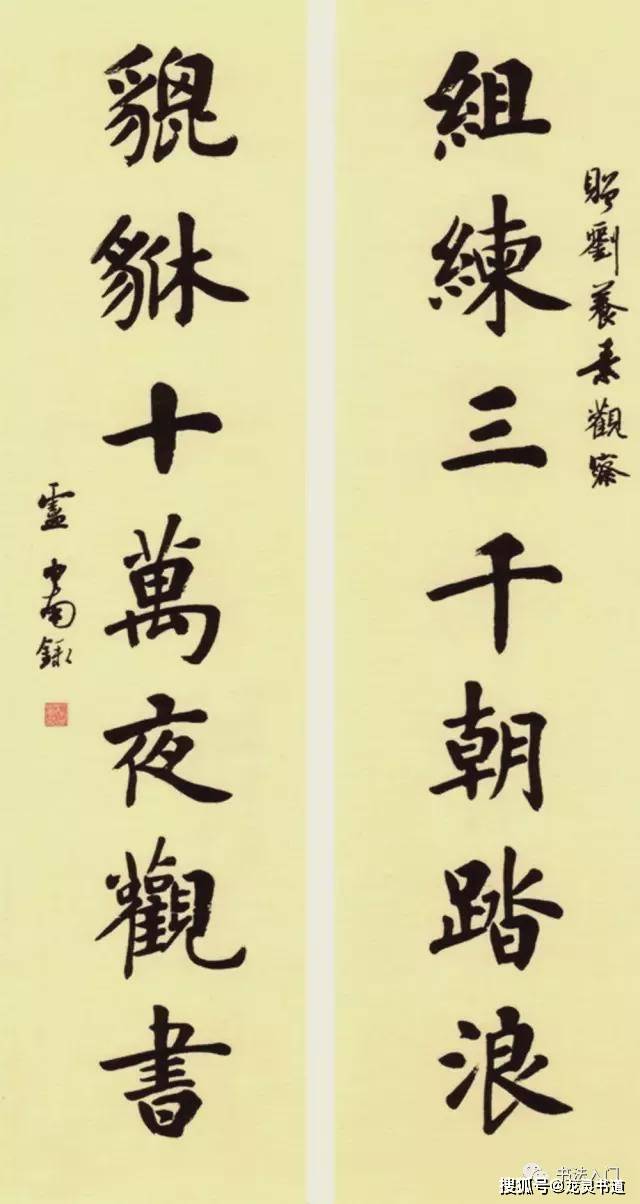 贈劉養素觀察
組練三千朝踏浪
貔貅十萬夜觀書
盧中南錄
书法入门
搜狐号@龙灵书道